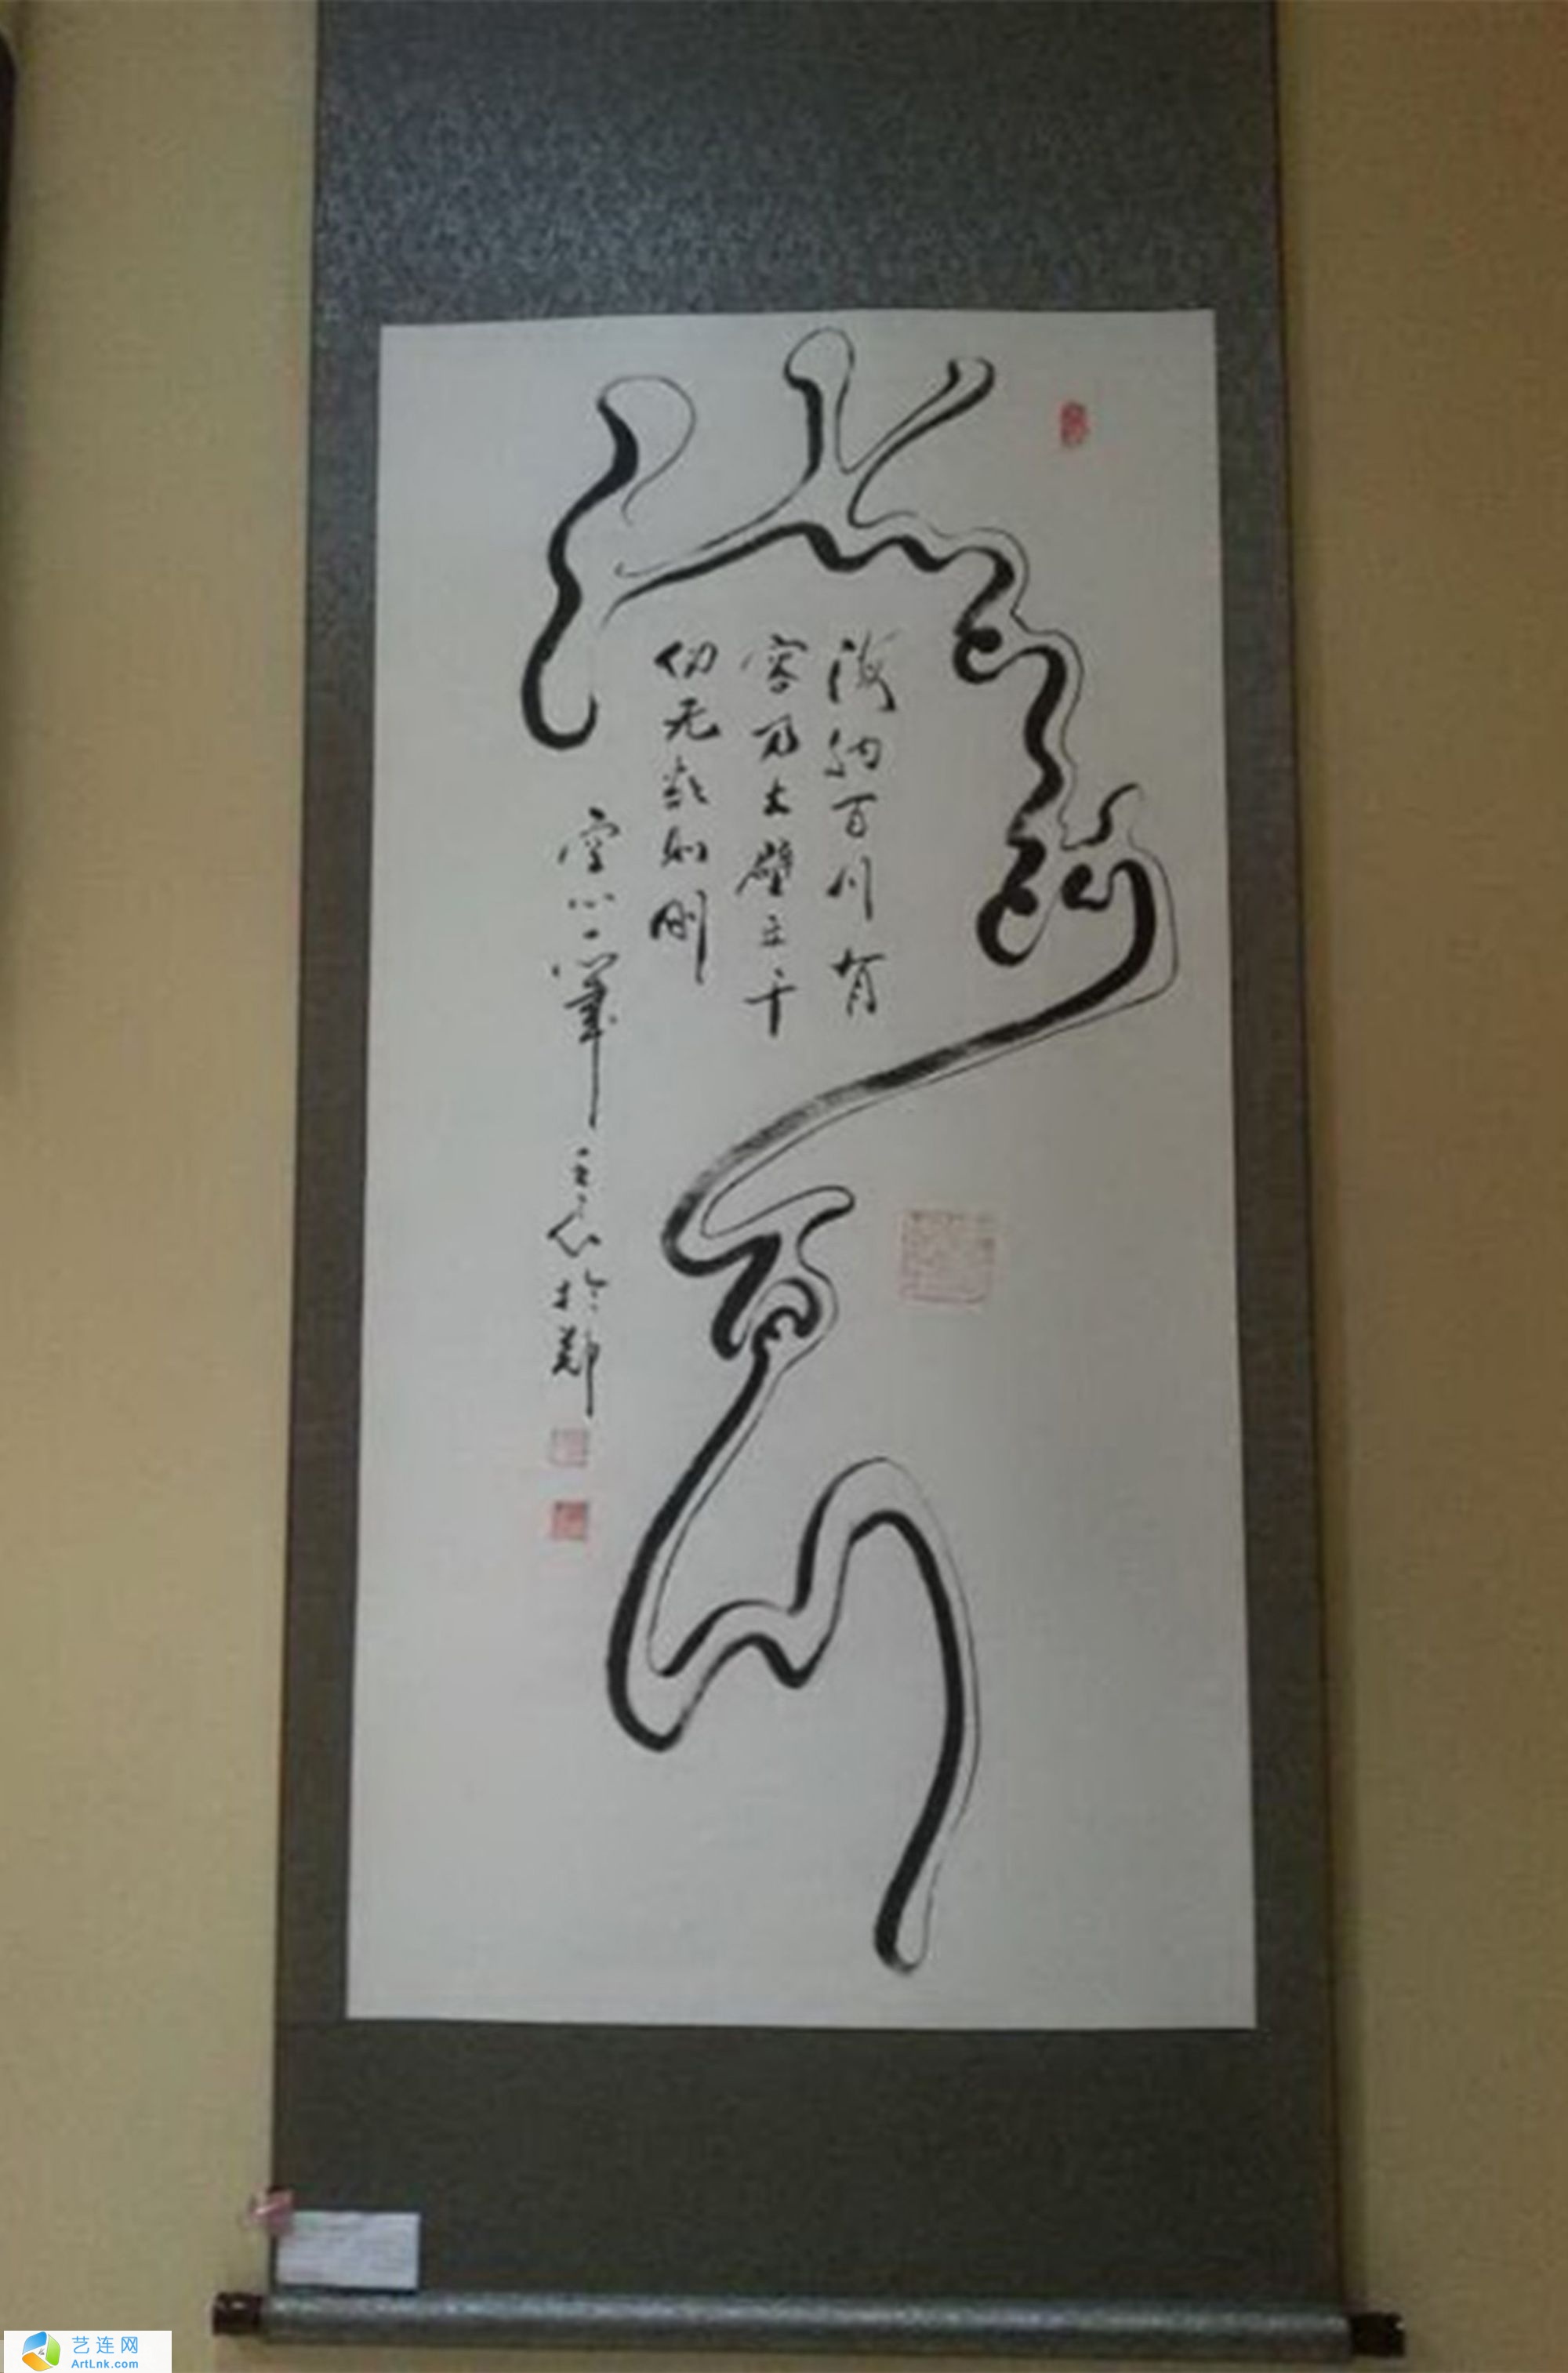 海纳百川
海纳百川有
容乃大壁立千
仞无欲如刚
空心一筆 於郑
艺连网
ArtLnk.com